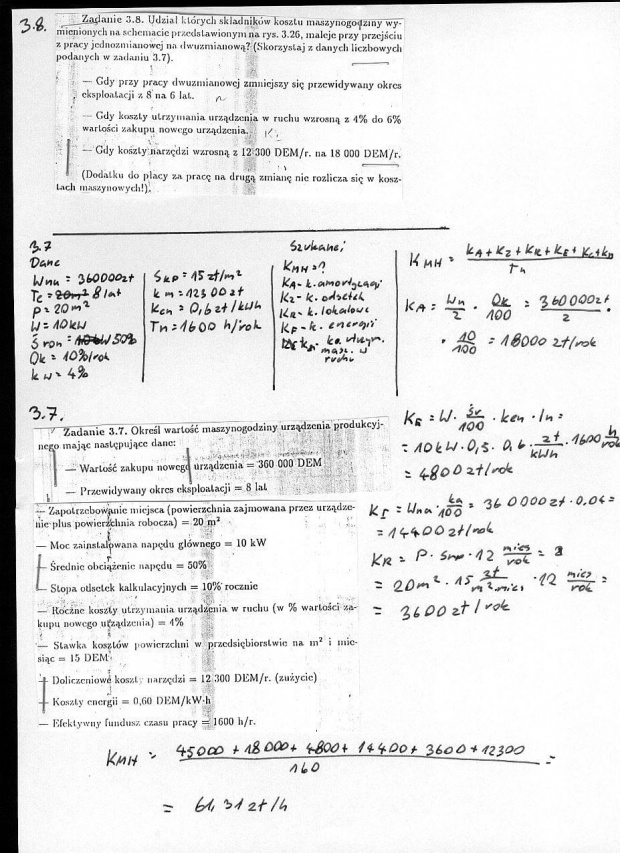 3.8.
Zadanie 3.8. Udział których składników kosztu maszynogodziny wy-
mienionych na schemacie przedstawionym na rys. 3.26, maleje przy przejściu
z pracy jednozmianowej na dwuzmianową? (Skorzystaj z danych liczbowych
podanych w zadaniu 3.7).
— Gdy przy pracy dwuzmianowej zmniejszy się przewidywany okres
eksploatacji z 8 na 6 lat.
— Gdy koszty utrzymania urządzenia w ruchu wzrosną z 4% do 6%
wartości zakupu nowego urządzenia.
— Gdy koszty narzędzi wzrosną z 12 300 DEM/r. na 18 000 DEM/r.
(Dodatku do płacy za pracę na drugą zmianę nie rozlicza się w kosz-
tach maszynowych!).
3.7
Dane
Wna = 360000zł
Tc = 8 lat
P = 20 m²
W = 10 kW
Śron = 50%
Ok = 10%/rok
kw = 4%
Skp = 15 zł/m²
km = 12300 zł
Ken = 0,6 zł/kWh
Tn = 1600 h/rok
Szukane;
KMH = ?
KA - k. amortyzacji
KZ - k. odsetek
KR - k. lokalowe
KE - k. energii
ko. utrzym.
masz. w
ruchu
KMH = KA + KZ + KR + KE + KL + KN / Tn
KA = Wn/2 · Ok/100 = 360000zł/2 ·
· 10/100 = 18000 zł/rok
KE = W · Śr/100 · ken · Tn =
= 10kW · 0,5 · 0,6 zł/kWh · 1600 h/rok
= 4800 zł/rok
KI = Wna ka/100 = 360000zł · 0,04 =
= 14400 zł/rok
KR = P · Smp · 12 mies/rok =
= 20m² · 15 zł/m² mies · 12 mies/rok =
= 3600 zł/rok
3.7.
Zadanie 3.7. Określ wartość maszynogodziny urządzenia produkcyj-
nego mając następujące dane:
— Wartość zakupu nowego urządzenia = 360 000 DEM
— Przewidywany okres eksploatacji = 8 lat
— Zapotrzebowanie miejsca (powierzchnia zajmowana przez urządze-
nie plus powierzchnia robocza) = 20 m²
— Moc zainstalowana napędu głównego = 10 kW
— Średnie obciążenie napędu = 50%
— Stopa odsetek kalkulacyjnych = 10% rocznie
— Roczne koszty utrzymania urządzenia w ruchu (w % wartości za-
kupu nowego urządzenia) = 4%
— Stawka kosztów powierzchni w przedsiębiorstwie na m² i mie-
siąc = 15 DEM
— Doliczeniowe koszty narzędzi = 12 300 DEM/r. (zużycie)
— Koszty energii = 0,60 DEM/kW·h
— Efektywny fundusz czasu pracy = 1600 h/r.
KMH = 45000 + 18000 + 4800 + 14400 + 3600 + 12300 / 160 =
= 61,31 zł/h